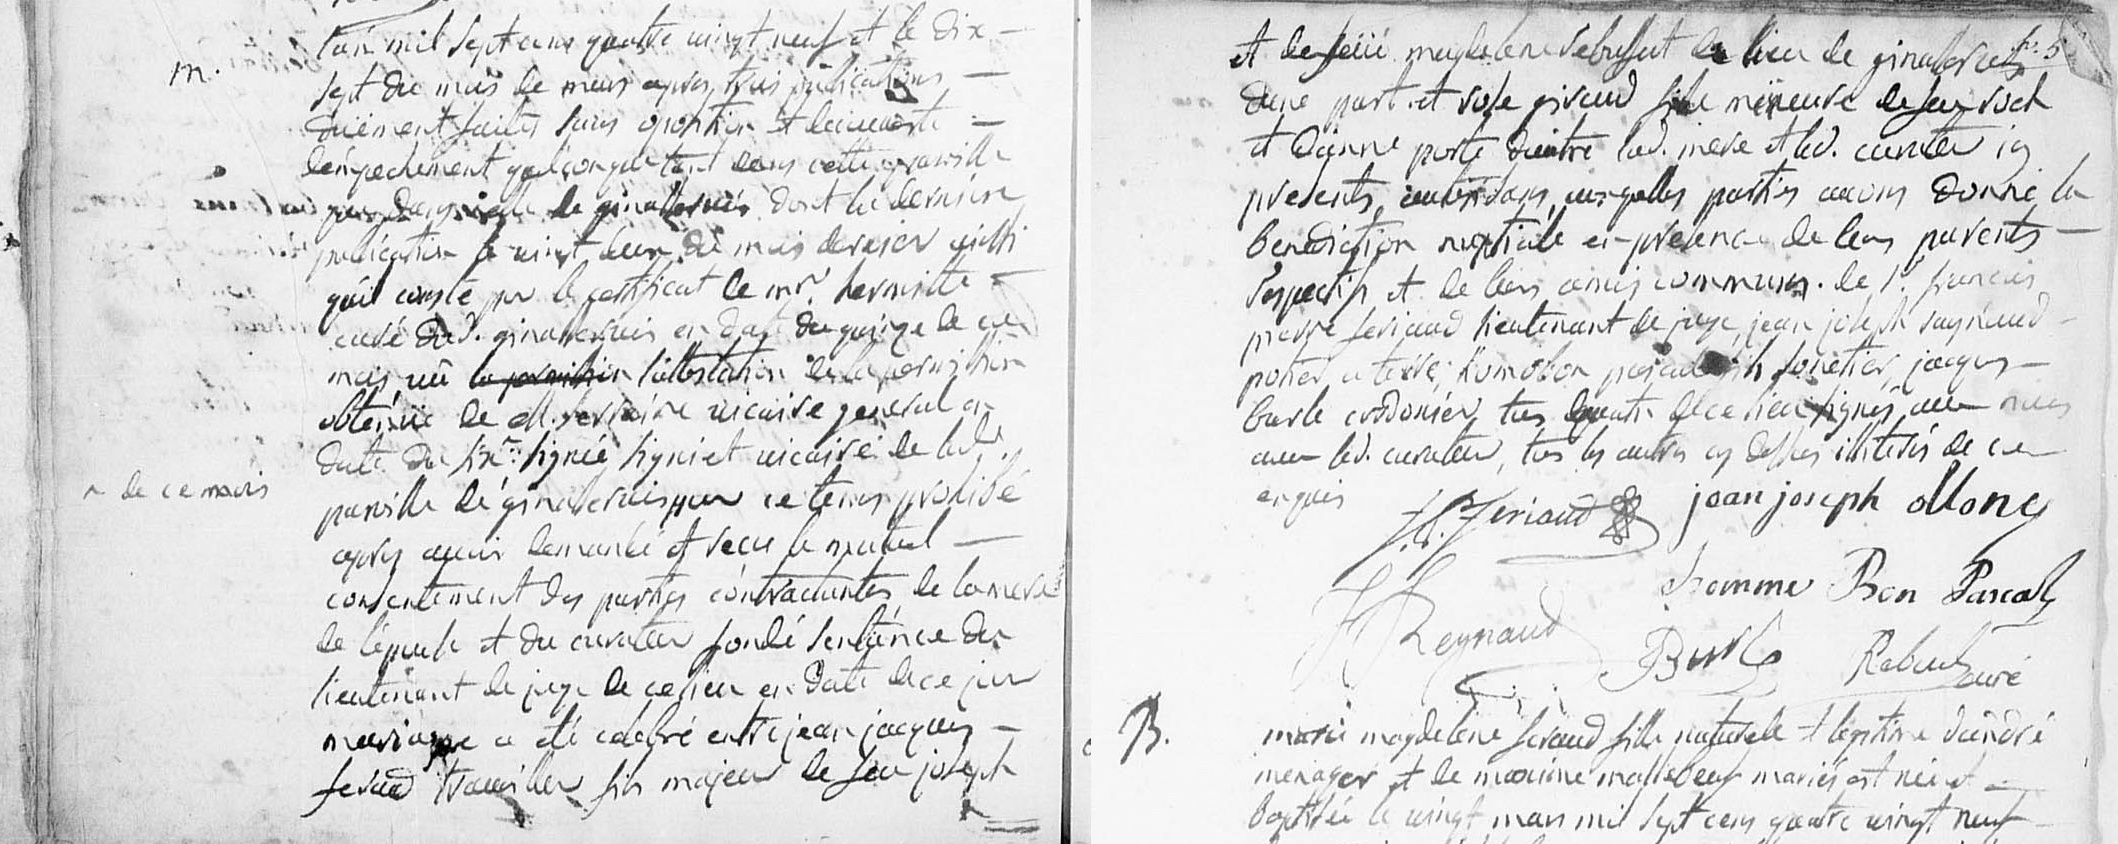 m.
l'an mil sept cens quatre vingt neuf et le dix
sept du mois de mars apres trois publications
duement faites sans oposition et decouverte
d'empechement quelconque tant dans cette paroisse
que dans celle de ginasservis dont la derniere
publication le vint deux du mois dernier ainsi
qu'il conste par le certificat de mr. hermitte
curé dud. ginasservis en date du quinze de ce
mois, vû la permission l'attestation de la permission
obtenüe de M. vicaire general en
date du six signée vicaire de lad.
^ de ce mois
paroisse de ginasservis pour ce tems prohibé
apres avoir demandé et recu le mutuel
consentement des parties contractantes de la mere
de l'epouse et du curateur fondé sentence du
lieutenant de juge de ce lieu en date de ce jour
mariage a été celebré entre jean jacques
feraud travailleur fils majeur de feu joseph
fo. 5
et de feüe magdelene rebuffat de lieu de ginasservis
d'une part et rose giraud fille mineure de feu roch
et d'anne d'autre lad. mere et led. curateur icy
presents, autorisans, auxquelles parties avons donné la
benediction nuptiale en presence de leurs parents
respectifs et de leurs amis communs. de sr. francois
pierre feriaud lieutenant de juge, jean joseph raynaud
potier a terre, homobon pascal, jacques
burle cordonier, tous quatre de ce lieu signés avec nous
avec led. curateur, tous les autres cy dessus illiterés de ce
enquis
f. p. Feriaud jean joseph ollone
J J Reynaud homme Bon Pascal
Burle Reboul curé
B.
marie magdelene feraud fille naturele et legitime d'andré
menager et de maxime mariés est née et
baptisée le vingt mars mil sept cens quatre vingt neuf